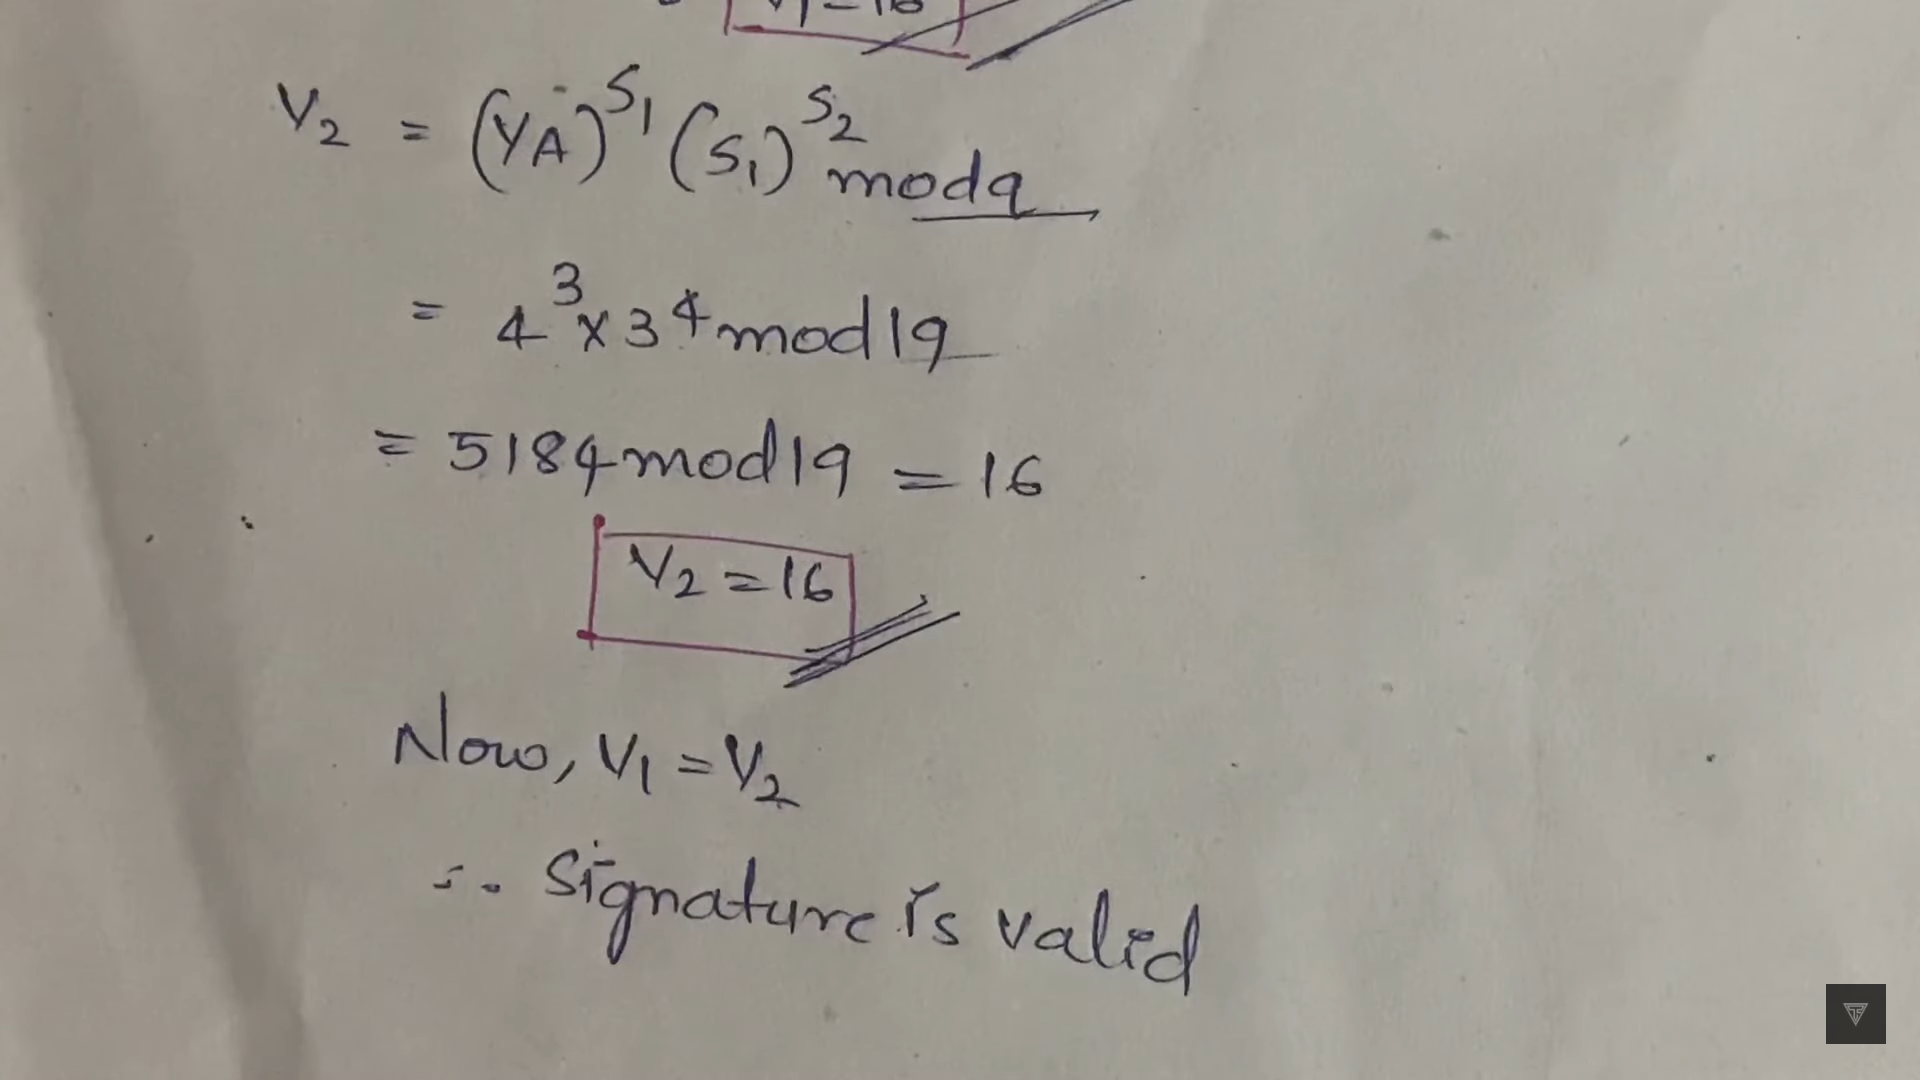 V1 = 16
V₂ = (YA)^S₁ (S₁)^S₂ mod q
= 4³ × 3⁴ mod 19
= 5184 mod 19 = 16
V₂ = 16
Now, V₁ = V₂
∴ Signature is valid